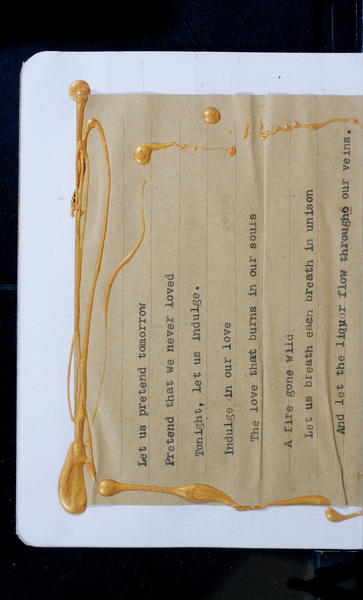 Let us pretend tomorrow
Pretend that we never loved
Tonight, let us indulge.
Indulge in our love
The love that burns in our souls
A fire gone wild
Let us breath each breath in unison
And let the liquor flow through our veins.